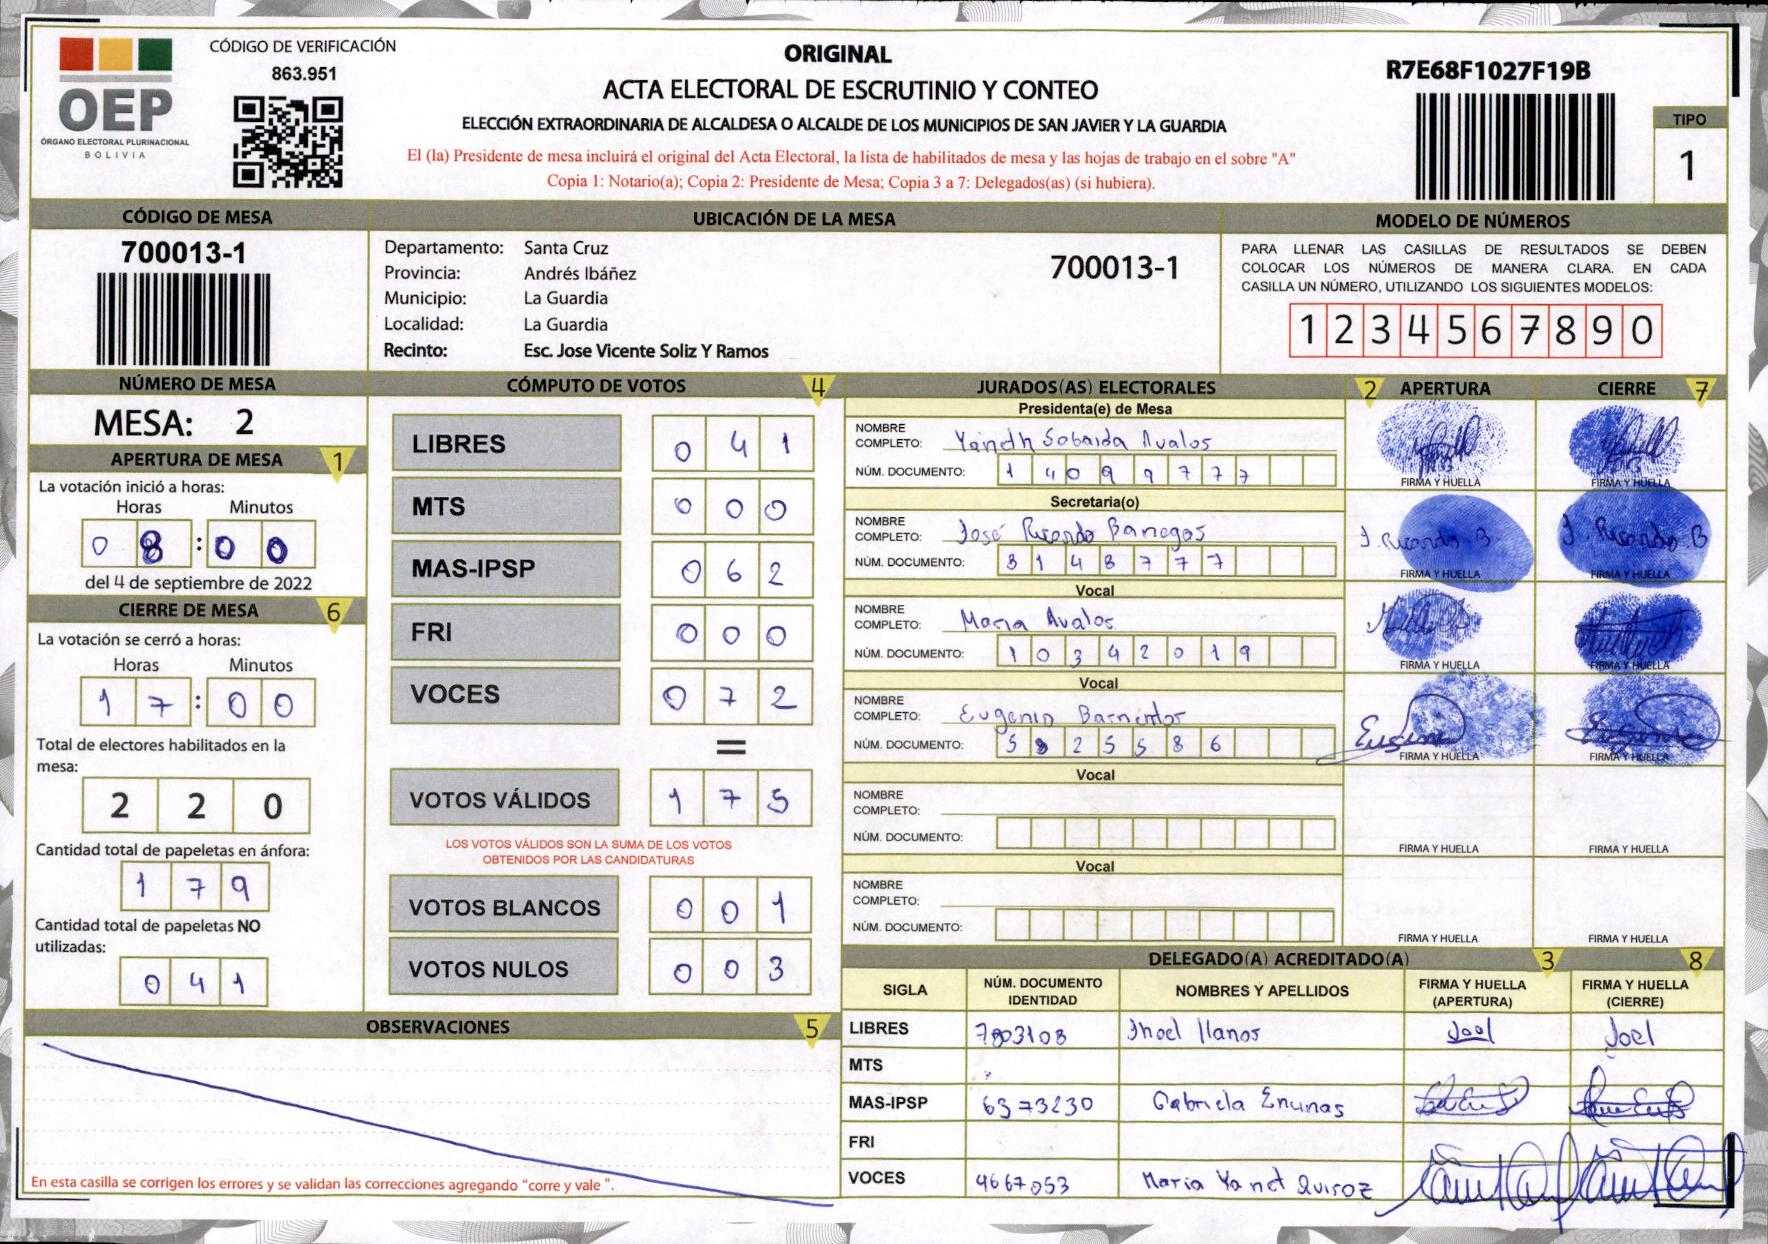 CÓDIGO DE VERIFICACIÓN
863.951
OEP
ÓRGANO ELECTORAL PLURINACIONAL
BOLIVIA
ORIGINAL
ACTA ELECTORAL DE ESCRUTINIO Y CONTEO
ELECCIÓN EXTRAORDINARIA DE ALCALDESA O ALCALDE DE LOS MUNICIPIOS DE SAN JAVIER Y LA GUARDIA
El (la) Presidente de mesa incluirá el original del Acta Electoral, la lista de habilitados de mesa y las hojas de trabajo en el sobre "A"
Copia 1: Notario(a); Copia 2: Presidente de Mesa; Copia 3 a 7: Delegados(as) (si hubiera).
R7E68F1027F19B
TIPO
1
CÓDIGO DE MESA
700013-1
UBICACIÓN DE LA MESA
Departamento: Santa Cruz
Provincia: Andrés Ibáñez
Municipio: La Guardia
Localidad: La Guardia
Recinto: Esc. Jose Vicente Soliz Y Ramos
700013-1
MODELO DE NÚMEROS
PARA LLENAR LAS CASILLAS DE RESULTADOS SE DEBEN
COLOCAR LOS NÚMEROS DE MANERA CLARA. EN CADA
CASILLA UN NÚMERO, UTILIZANDO LOS SIGUIENTES MODELOS:
1 2 3 4 5 6 7 8 9 0
NÚMERO DE MESA
MESA: 2
APERTURA DE MESA 1
La votación inició a horas:
Horas Minutos
0 8 : 0 0
del 4 de septiembre de 2022
CIERRE DE MESA 6
La votación se cerró a horas:
Horas Minutos
1 7 : 0 0
Total de electores habilitados en la
mesa:
2 2 0
Cantidad total de papeletas en ánfora:
1 7 9
Cantidad total de papeletas NO
utilizadas:
0 4 1
CÓMPUTO DE VOTOS 4
LIBRES 0 4 1
MTS 0 0 0
MAS-IPSP 0 6 2
FRI 0 0 0
VOCES 0 7 2
=
VOTOS VÁLIDOS 1 7 5
LOS VOTOS VÁLIDOS SON LA SUMA DE LOS VOTOS
OBTENIDOS POR LAS CANDIDATURAS
VOTOS BLANCOS 0 0 1
VOTOS NULOS 0 0 3
OBSERVACIONES 5
En esta casilla se corrigen los errores y se validan las correcciones agregando "corre y vale ".
JURADOS(AS) ELECTORALES 2 APERTURA CIERRE 7
Presidenta(e) de Mesa
NOMBRE
COMPLETO: Sobaida Avalos
NÚM. DOCUMENTO: 1 4 0 9 9 7 7 7
FIRMA Y HUELLA FIRMA Y HUELLA
Secretaria(o)
NOMBRE
COMPLETO: José Ricardo Banegas
J. Ricardo B J. Ricardo B
NÚM. DOCUMENTO: 3 1 4 8 7 7 7
FIRMA Y HUELLA FIRMA Y HUELLA
Vocal
NOMBRE
COMPLETO: Maria Avalos
NÚM. DOCUMENTO: 1 0 3 4 2 0 1 9
FIRMA Y HUELLA FIRMA Y HUELLA
Vocal
NOMBRE
COMPLETO: Eugenio Barrientos
NÚM. DOCUMENTO: 5 8 2 5 5 8 6
FIRMA Y HUELLA FIRMA Y HUELLA
Vocal
NOMBRE
COMPLETO:
NÚM. DOCUMENTO:
FIRMA Y HUELLA FIRMA Y HUELLA
Vocal
NOMBRE
COMPLETO:
NÚM. DOCUMENTO:
FIRMA Y HUELLA FIRMA Y HUELLA
DELEGADO(A) ACREDITADO(A) 3 8
SIGLA NÚM. DOCUMENTO IDENTIDAD NOMBRES Y APELLIDOS FIRMA Y HUELLA (APERTURA) FIRMA Y HUELLA (CIERRE)
LIBRES 7803108 Jhoel llanos Joel Joel
MTS
MAS-IPSP 6373230 Gabriela Encinas
FRI
VOCES 4667053 Maria Yanet Quiroz